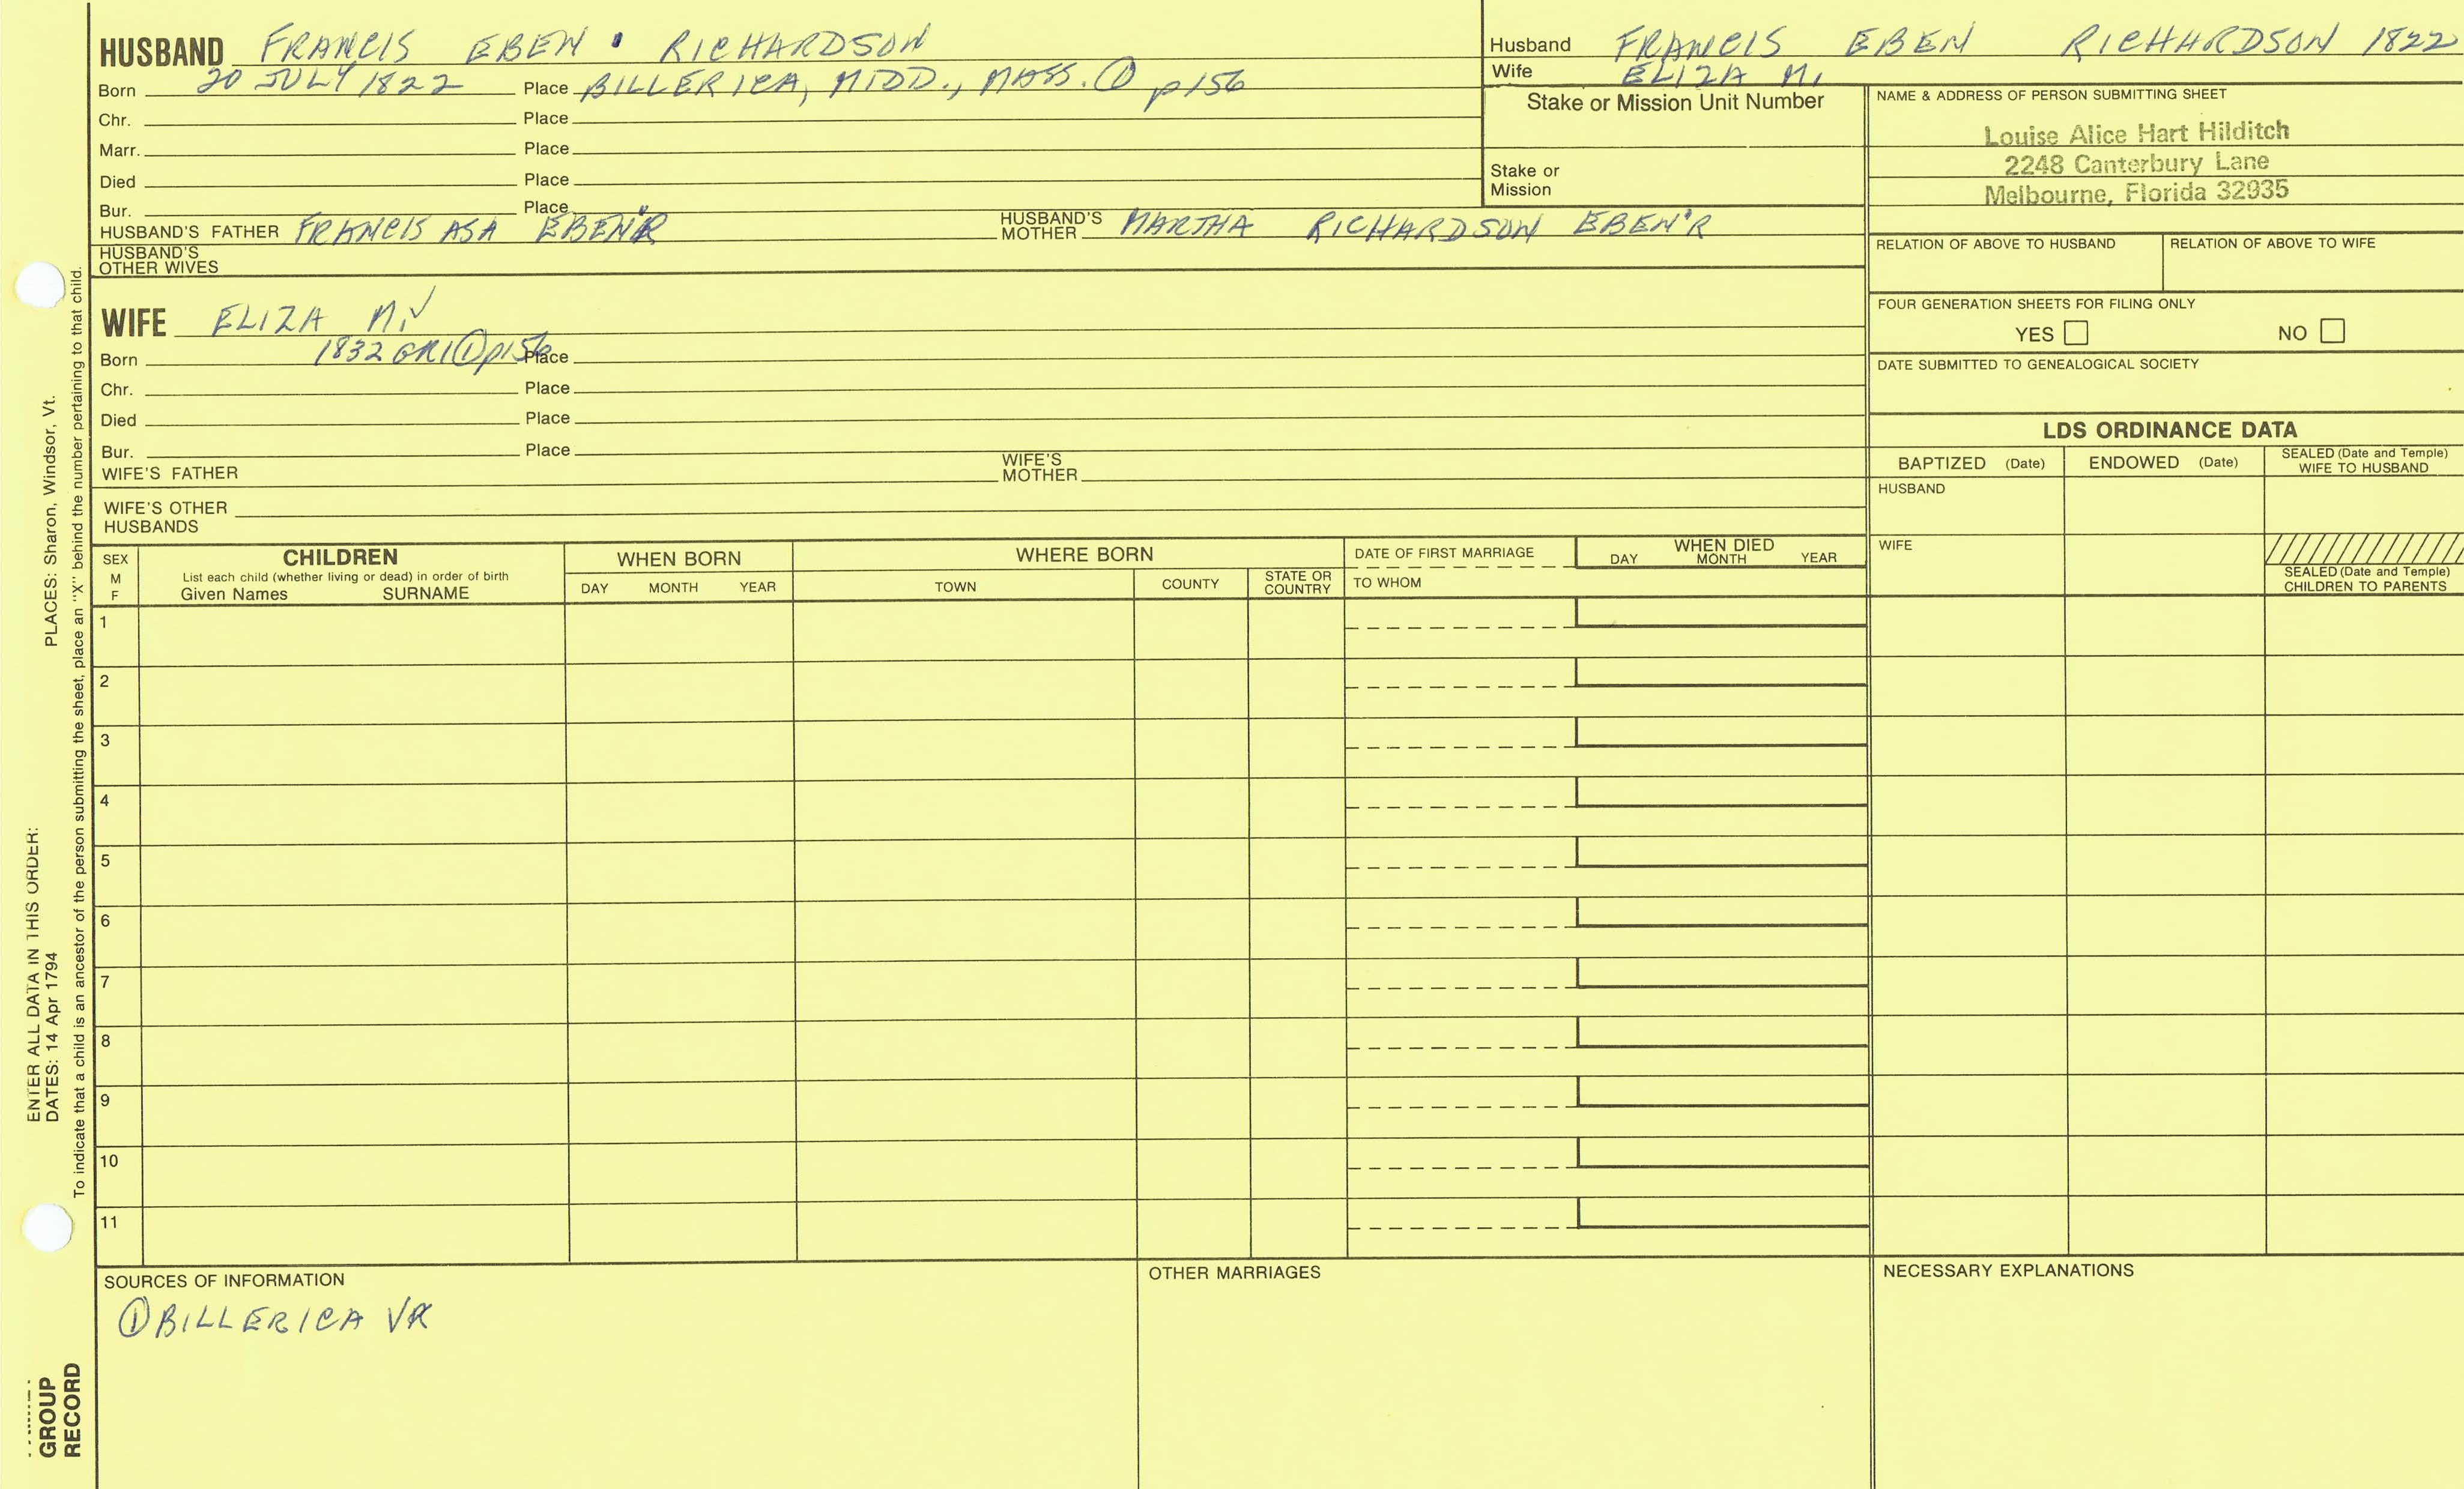 HUSBAND FRANCIS EBEN RICHARDSON
Born 20 JULY 1822 Place BILLERICA, MIDD., MASS. ① p156
Chr. Place
Marr. Place
Died Place
Bur. Place
HUSBAND'S FATHER FRANCIS ASA EBEN'R HUSBAND'S MOTHER MARTHA RICHARDSON EBEN'R
HUSBAND'S OTHER WIVES
WIFE ELIZA M. ✓
Born 1832 GR1 ① p156 Place
Chr. Place
Died Place
Bur. Place
WIFE'S FATHER WIFE'S MOTHER
WIFE'S OTHER HUSBANDS
Husband FRANCIS EBEN RICHARDSON 1822
Wife ELIZA M.
Stake or Mission Unit Number
Stake or
Mission
NAME & ADDRESS OF PERSON SUBMITTING SHEET
Louise Alice Hart Hilditch
2248 Canterbury Lane
Melbourne, Florida 32935
RELATION OF ABOVE TO HUSBAND RELATION OF ABOVE TO WIFE
FOUR GENERATION SHEETS FOR FILING ONLY
YES NO
DATE SUBMITTED TO GENEALOGICAL SOCIETY
LDS ORDINANCE DATA
BAPTIZED (Date) ENDOWED (Date) SEALED (Date and Temple) WIFE TO HUSBAND
HUSBAND
WIFE
SEALED (Date and Temple)
CHILDREN TO PARENTS
SEX
M
F
CHILDREN
List each child (whether living or dead) in order of birth
Given Names SURNAME
WHEN BORN
DAY MONTH YEAR
WHERE BORN
TOWN COUNTY STATE OR COUNTRY
DATE OF FIRST MARRIAGE
TO WHOM
WHEN DIED
DAY MONTH YEAR
1
2
3
4
5
6
7
8
9
10
11
SOURCES OF INFORMATION
① BILLERICA VR
OTHER MARRIAGES
NECESSARY EXPLANATIONS
ENTER ALL DATA IN THIS ORDER:
DATES: 14 Apr 1794 PLACES: Sharon, Windsor, Vt.
To indicate that a child is an ancestor of the person submitting the sheet, place an "X" behind the number pertaining to that child.
GROUP
RECORD